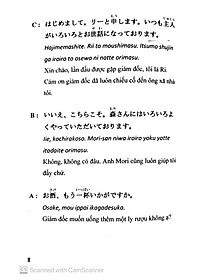 C : はじめまして。リーと申します。いつも主人
がいろいろとお世話になっております。
Hajimemashite. Rii to moushimasu. Itsumo shujin
ga iroiro to osewa ni natte orimasu.
Xin chào, lần đầu được gặp giám đốc, tôi là Ri.
Cám ơn giám đốc đã luôn chiếu cố đến ông xã nhà
tôi.
B : いいえ、こちらこそ。森さんにはいろいろよ
くやっていただいております。
Iie, kochirakoso. Mori-san niwa iroiro yoku yatte
itadaite orimasu.
Không, không có đâu. Anh Mori cũng luôn giúp tôi
đấy chứ.
A : お酒、もう一杯いかがですか。
Osake, mou ippai ikagadesuka.
Giám đốc muốn uống thêm một ly rượu không ạ?
8
CS Scanned with CamScanner